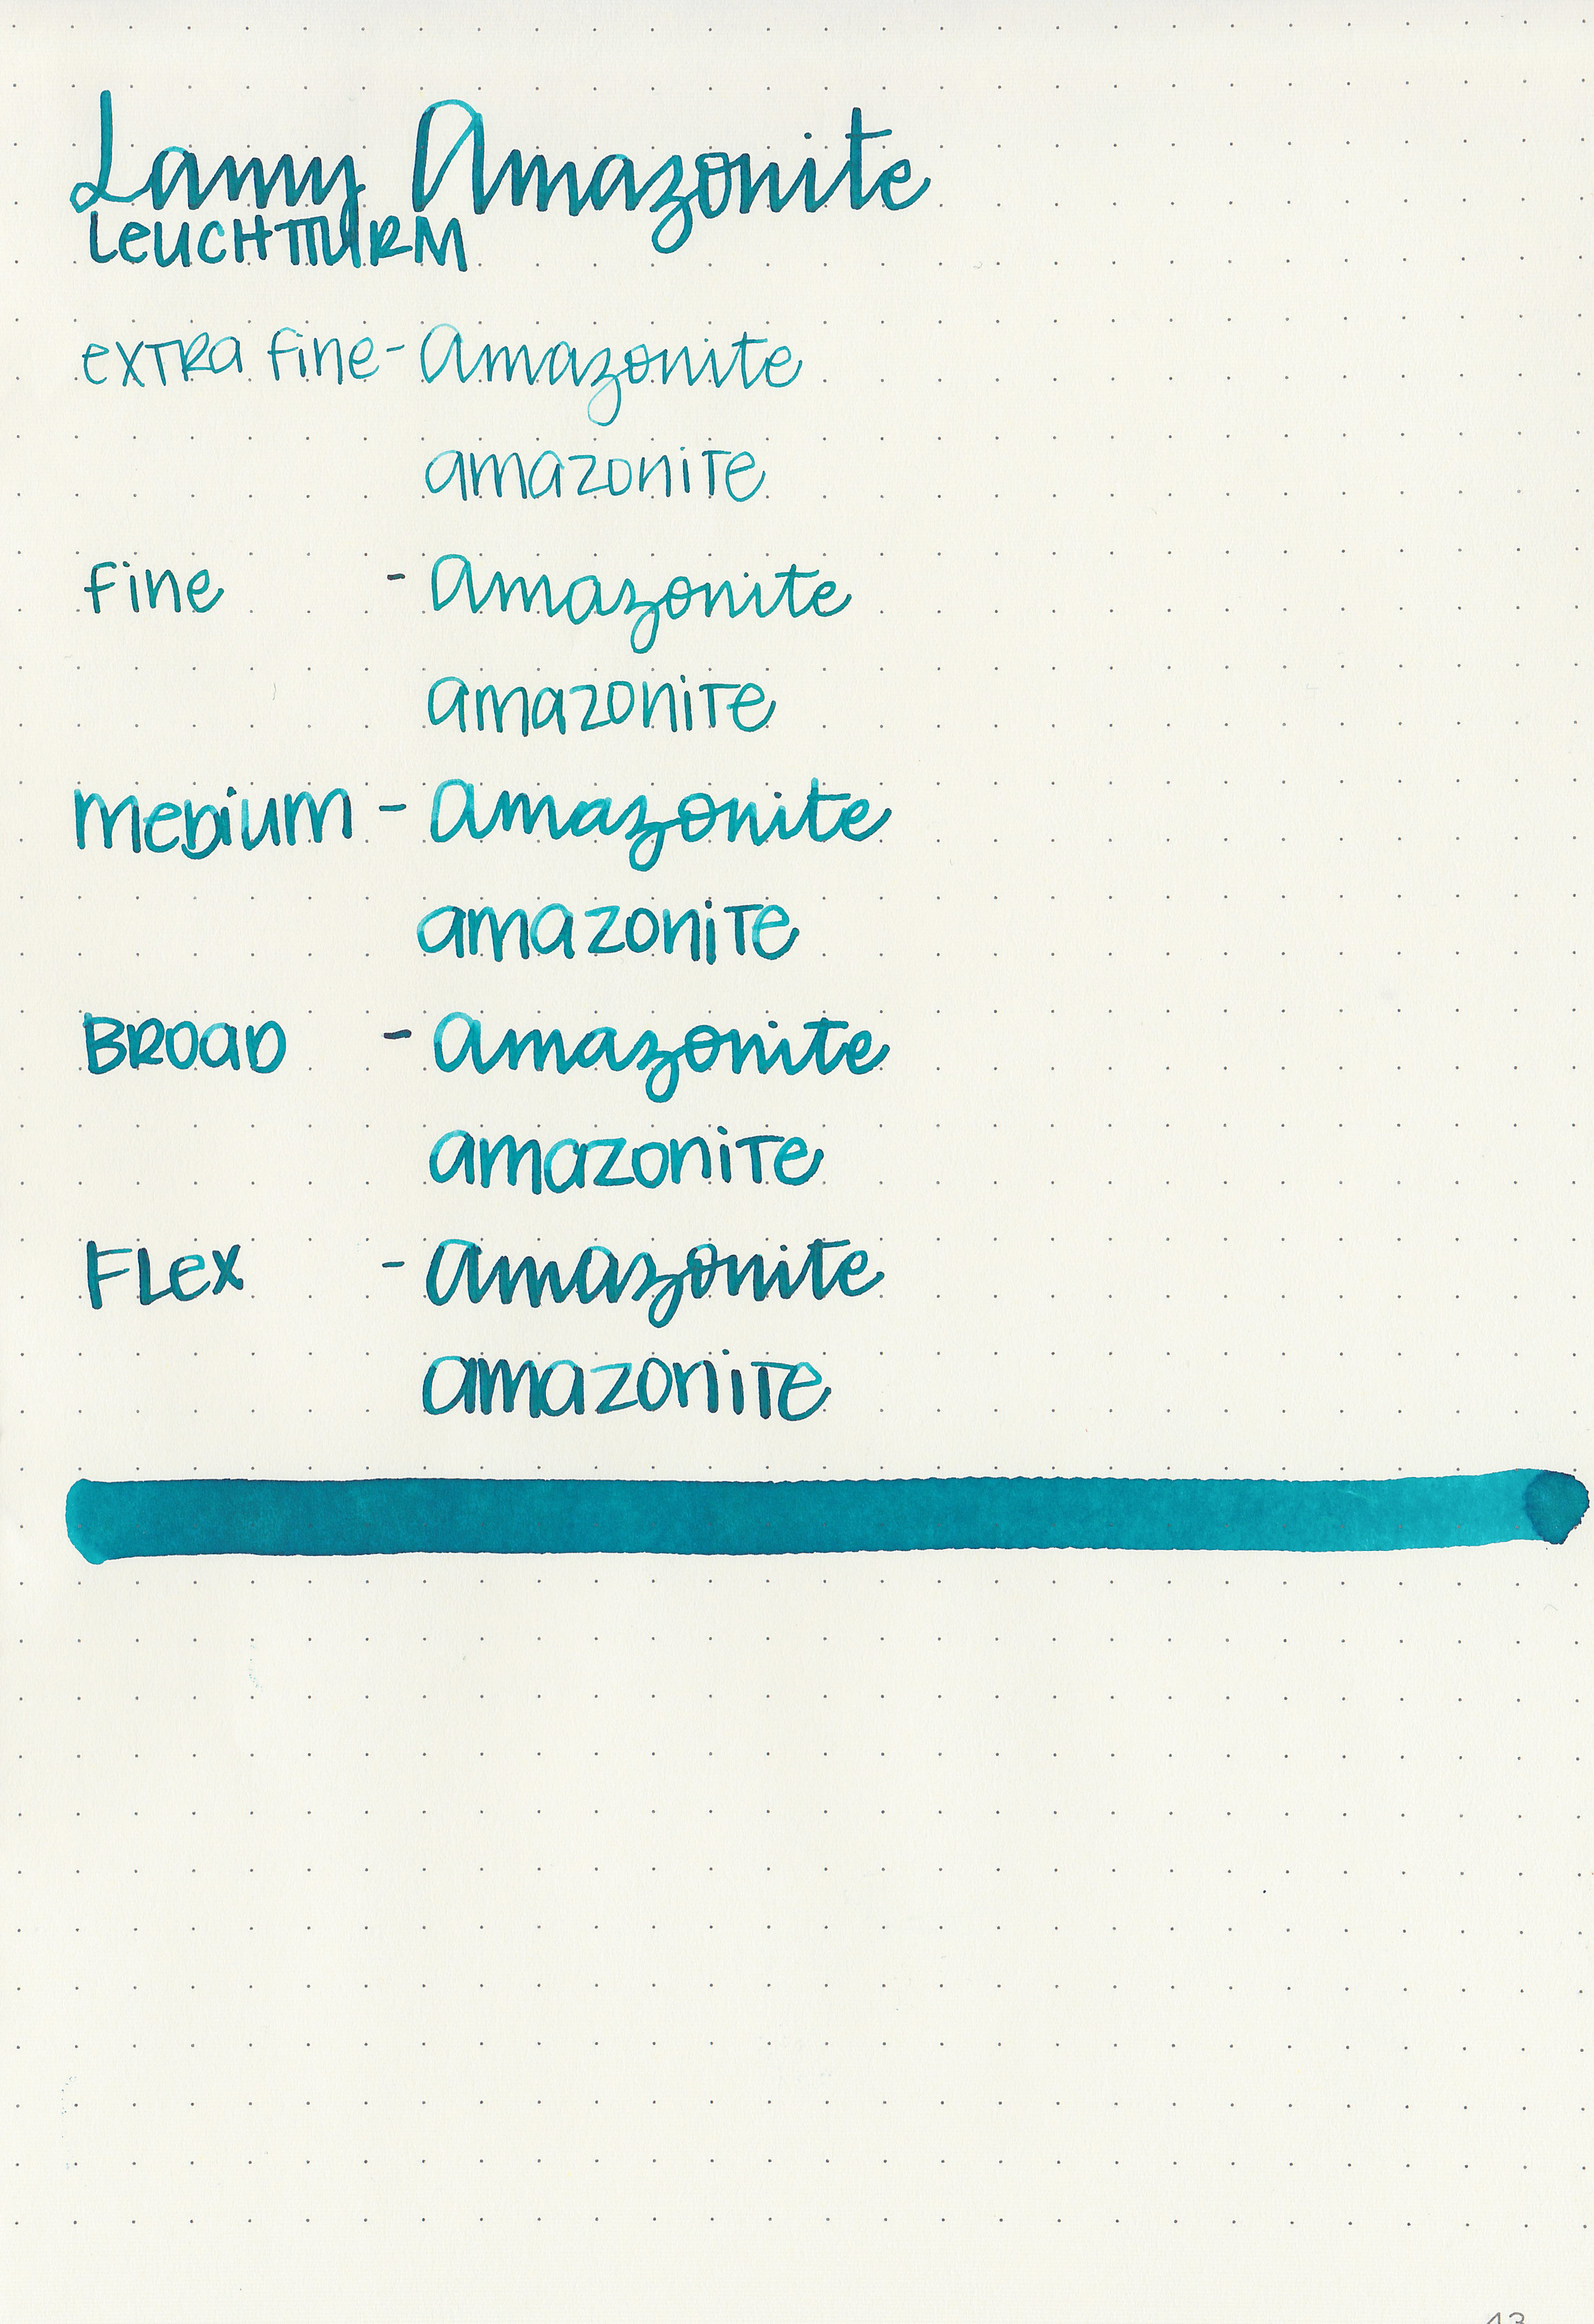 Lamy Amazonite
LeUCHTTURM
exTRa fine - Amazonite
amazoniTe
fine - Amazonite
amazoniTe
meDium - Amazonite
amazoniTe
BROaD - Amazonite
amazoniTe
FLex - Amazonite
amazoniTe